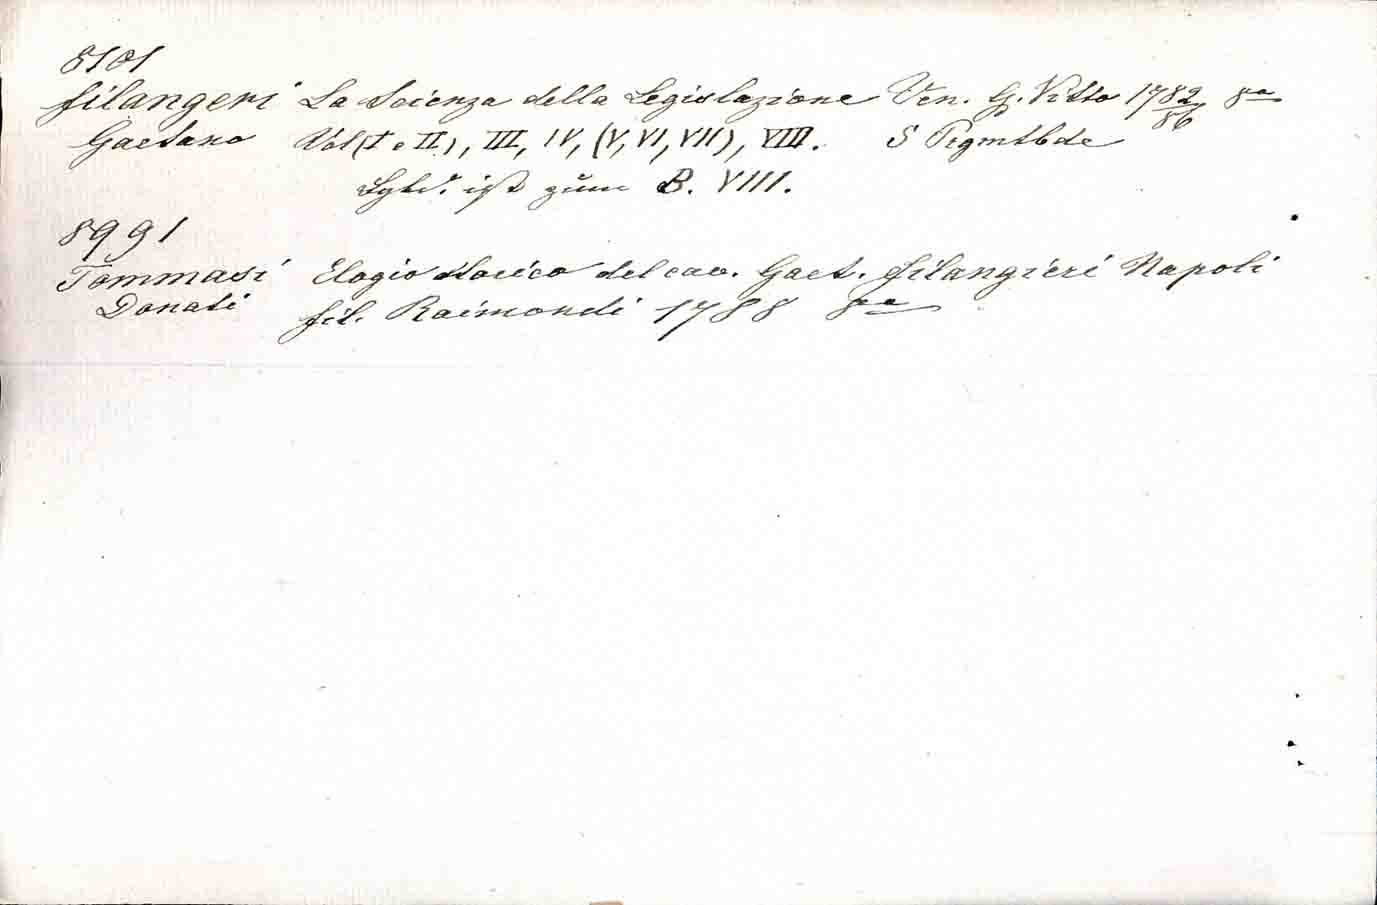 8101
Filangeri La Scienza della Legislazione Ven. G. Vitto 1782/86 8vo
Gaetano Vol (I e II), III, IV, (V, VI, VII), VIII. 5 Prgmtbde
ist zum B. VIII.
8991
Tommasi Elogio storico del cav. Gaet. Filangieri Napoli
Donati fil. Raimondi 1788 8vo